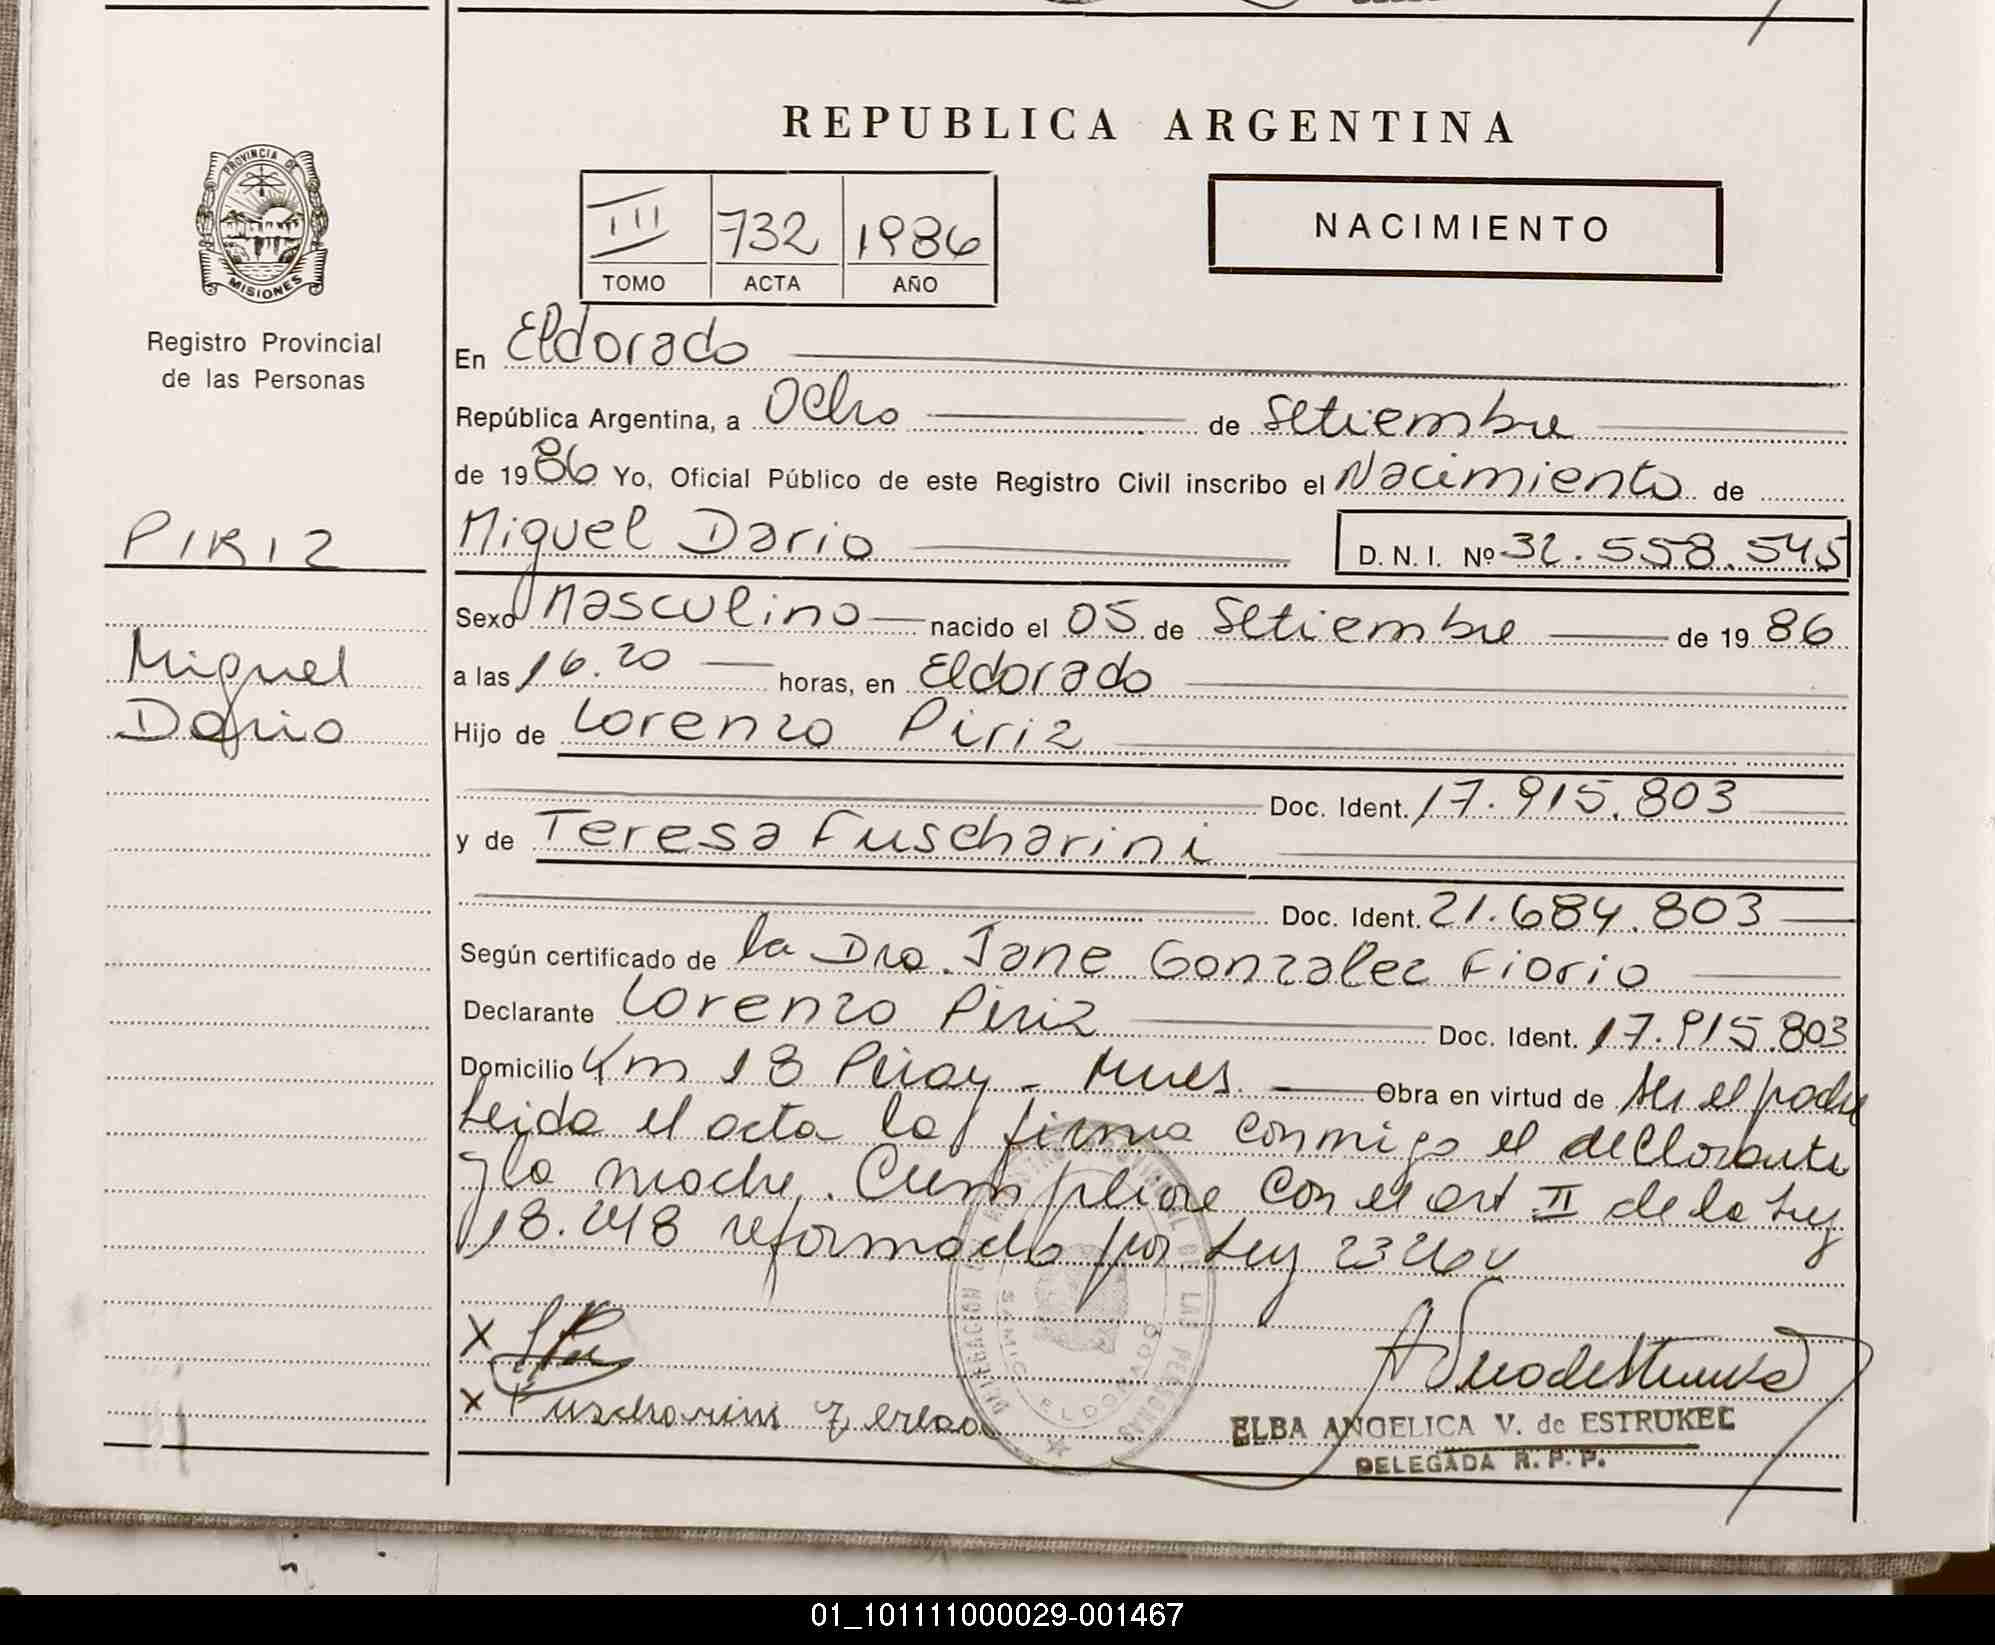 REPUBLICA ARGENTINA
PROVINCIA DE
MISIONES
Registro Provincial
de las Personas
III 732 1986
TOMO ACTA AÑO
NACIMIENTO
En Eldorado
República Argentina, a Ocho de Setiembre
de 1986 Yo, Oficial Público de este Registro Civil inscribo el Nacimiento de
PIRIZ
Miguel Dario D.N.I. Nº 32.558.545
Sexo Masculino nacido el 05 de Setiembre de 1986
Miguel
a las 16.20 horas, en Eldorado
Dario
Hijo de Lorenzo Piriz
Doc. Ident. 17.915.803
y de Teresa Fuscharini
Doc. Ident. 21.684.803
Según certificado de la Dra. Jane Gonzalez Fiorio
Declarante Lorenzo Piriz Doc. Ident. 17.915.803
Domicilio Km 18 Piray - Mnes. Obra en virtud de ser el padre
Leida el acta la firma conmigo el declarante
y la madre. Cumpliose con el art II de la Ley
18.248 reformada por Ley 23264
X
X Fuscharini
DIRECCION LAS PERSONAS
SAMIC ELDORADO
ELBA ANGELICA V. de ESTRUKEL
DELEGADA R. P. P.
01_101111000029-001467